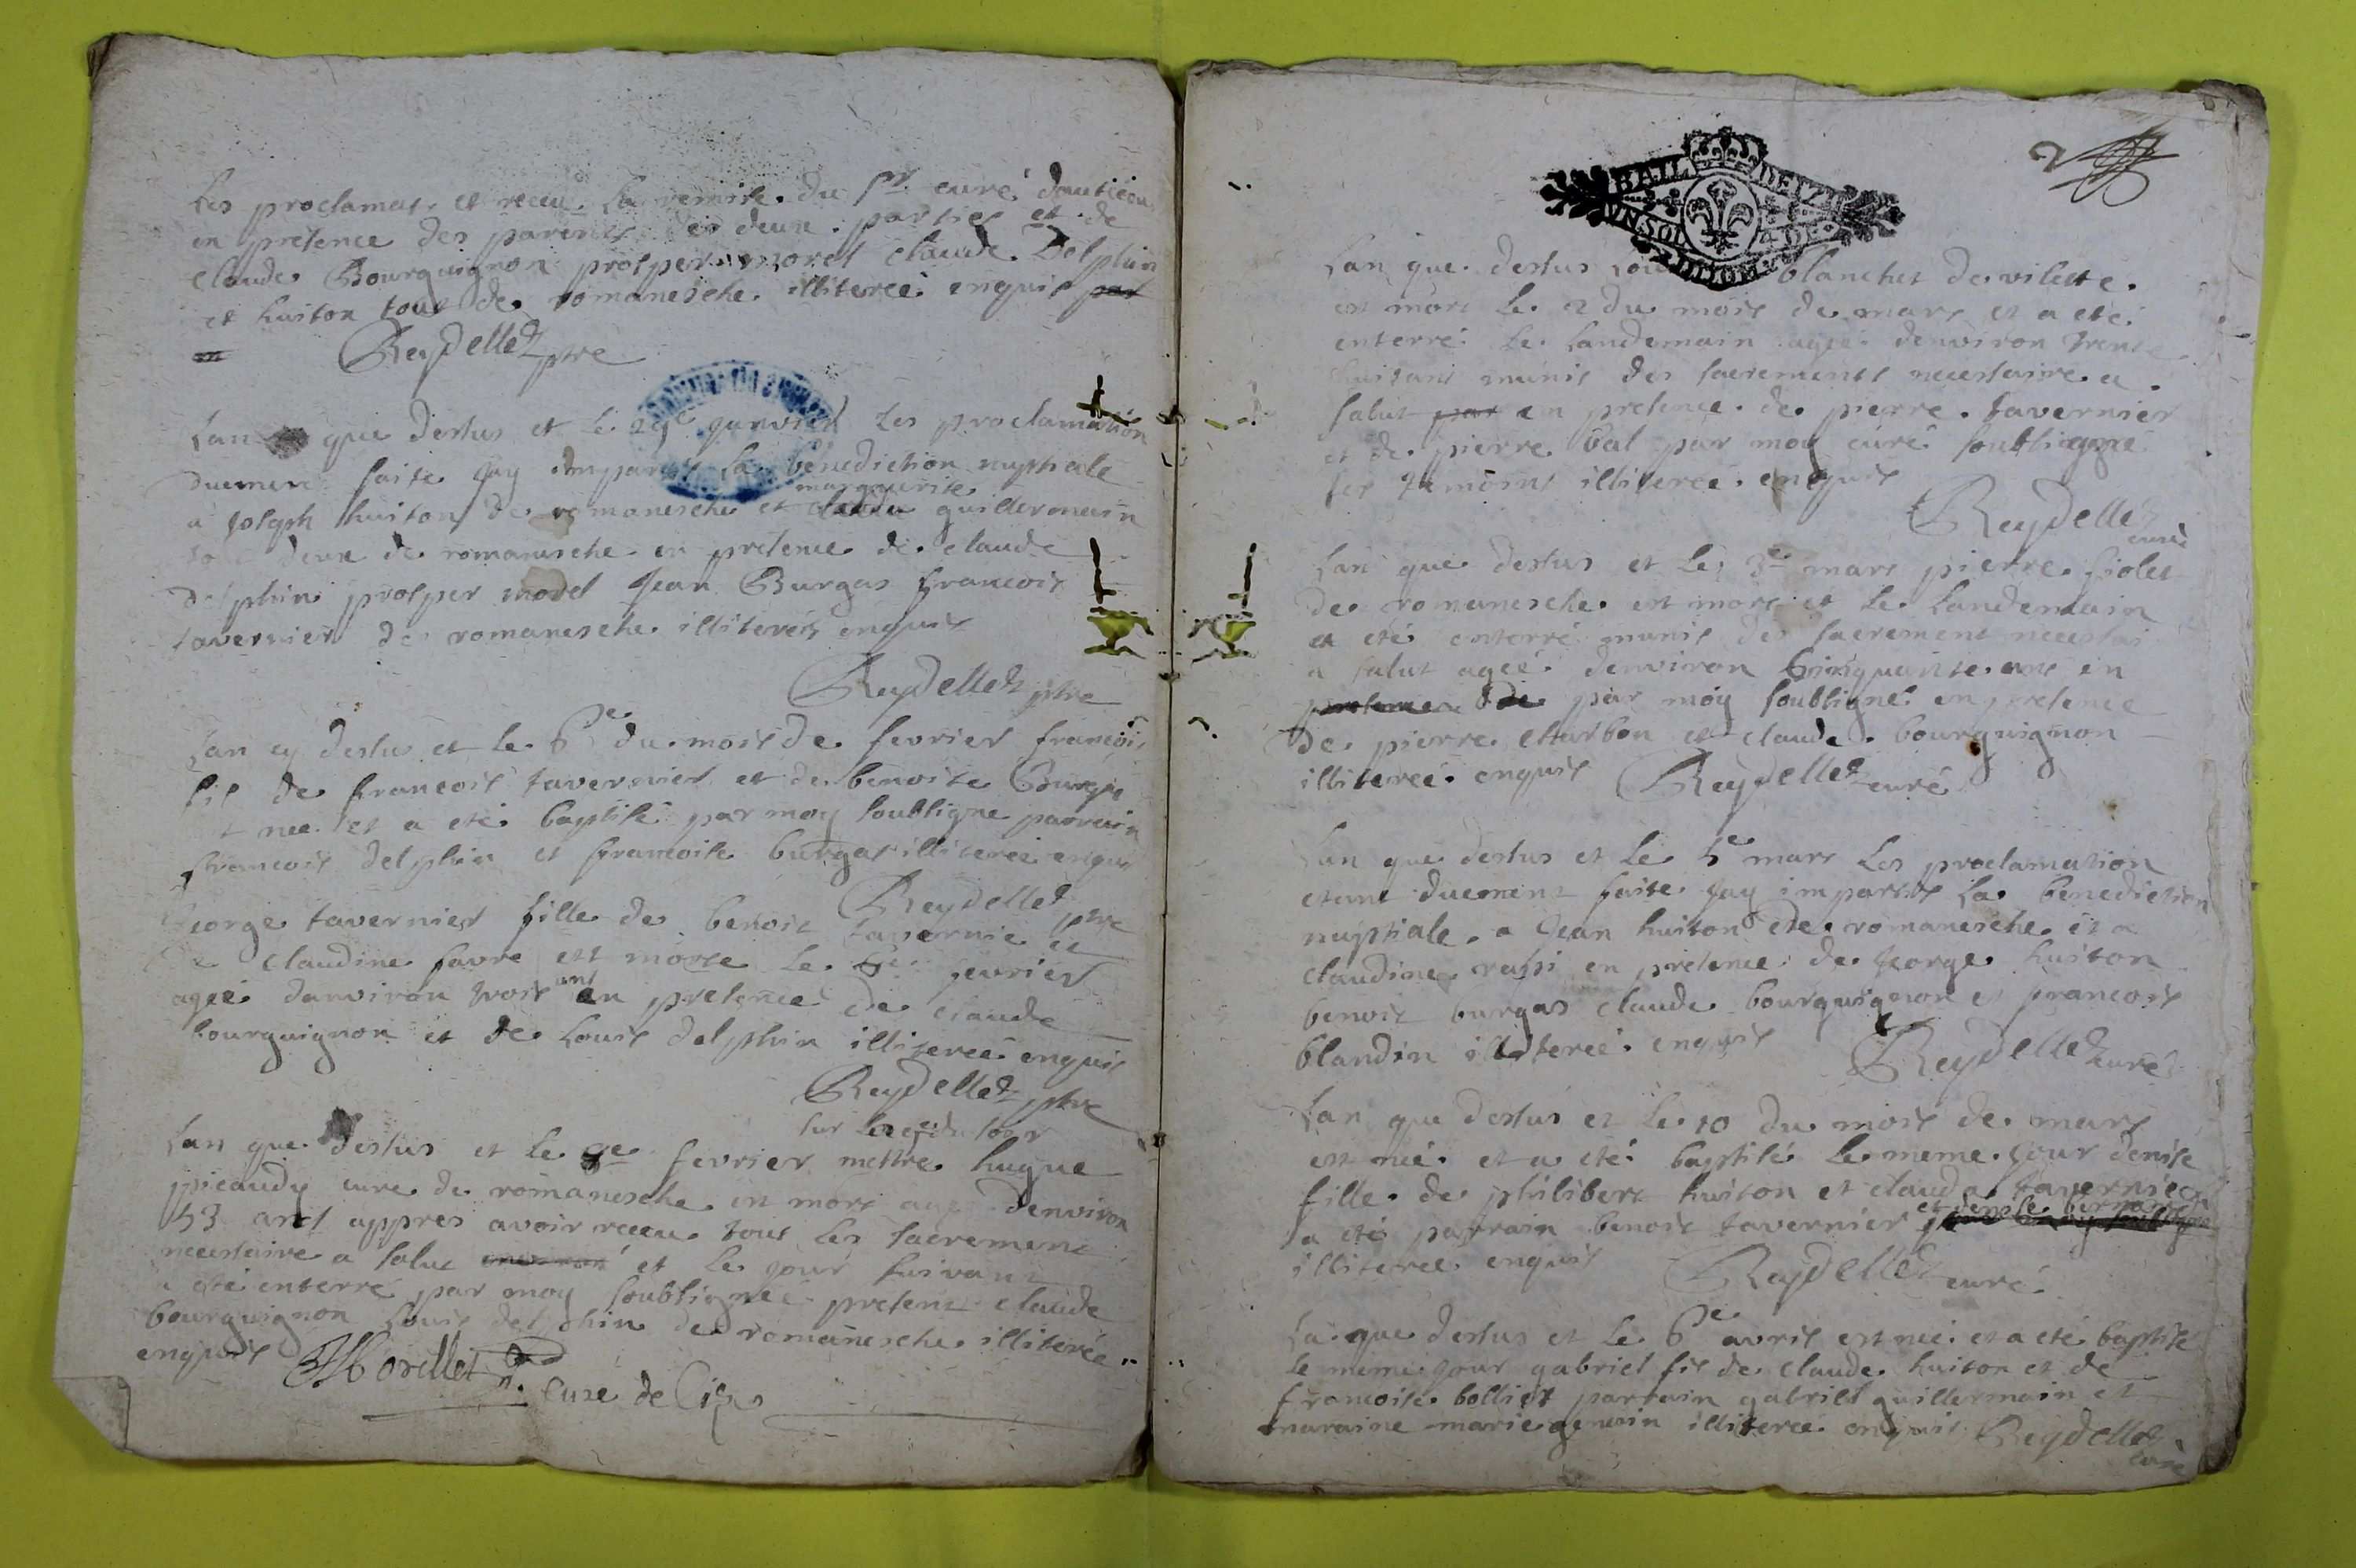 Les proclamas et receu la remise du sr curé
en presence des parents des deux parties et de
claude Bourguignon prosper morel claude Delphin
et huiton tous de romanesche illiteree enquis par
Reydellet ptre
Lan que dessus et le 29e janvier les proclamation
duement faite jay imparti la benediction nuptiale
marguerite
a joseph huiton de romanesche et guillermein
deux de romanesche en presence de claude
delphin prosper morel jean Burgas francois
tavernier de romanesche illiterés enquis
Reydellet ptre
Lan cy dessus et le 6e du mois de fevrier francois
fils de francois tavernier et de benoite Burgas
nee et a eté baptisé par moy soubsigne parrein
francois delphin et francoise burgas illiteree enquis
Reydellet ptre
George tavernier fille de benoit tavernie et
de claudine favre est morte le fevrier
ans
ageé danviron trois en presence de claude
bourguignon et de Louis delphin illitereé enquis
Reydellet ptre
sur les du soir
Lan que dessus et le 9e fevrier mettre hugue
picaudy cure de romanesche est mort age denviron
53 ans appres avoir receu tous les sacrement
necessaire a salut et le jour suivant
a eté enterré par moy soubsigneé present claude
bourguignon Louis delphin de romanesche illiterée
enquis
Morellet Curé de Cize
2
BAIL DE
VN SOL 4 D
Lan que dessus blanchet de vilette
est mort le 2 du mois de mars et a eté
enterré le Landemain ageé denviron trente
huitans munis des sacrements necessaire a
salut par en presence de pierre tavernier
et de pierre Val par moy curé soubsigné
les temoins illitereé enquis
Reydellet
curé
Lan que dessus et Le 3e mars pierre fiolet
de romanesche est mort et le Landemain
a eté enterré munis des sacrement necessai
a salut ageé denviron cinquante ans en
presence de par moy soubsigné en presence
de pierre charbon et claude bourguignon
illitereé enquis Reydellet curé
Lan que dessus et le 5e mars Les proclamation
etant duement faite jay impartis La benediction
nuptiale a jean huiton de romanesche et a
claudine en presence de george huiton
benoit burgas claude bourguignon et francois
blandin illitereé enquis
Reydellet curé
Lan que dessus et le 10 du mois de mars
est neé et a eté baptisé le meme jour denise
fille de philibert huiton et clauda tavernier
et denise
a eté parrain benoit tavernier
illiteree enquis
Reydellet curé
La que dessus et le 6e avril est neé et a eté baptisé
le meme jour gabriel fils de claude huiton et de
francoise bolliet parrain gabriel guillermain et
maraine marie illitereé enquis Reydellet
curé